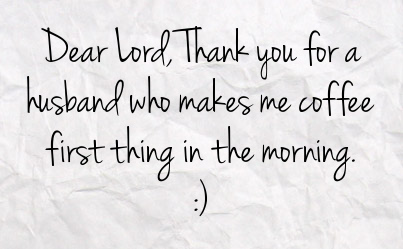 Dear Lord, Thank you for a
husband who makes me coffee
first thing in the morning.
:)